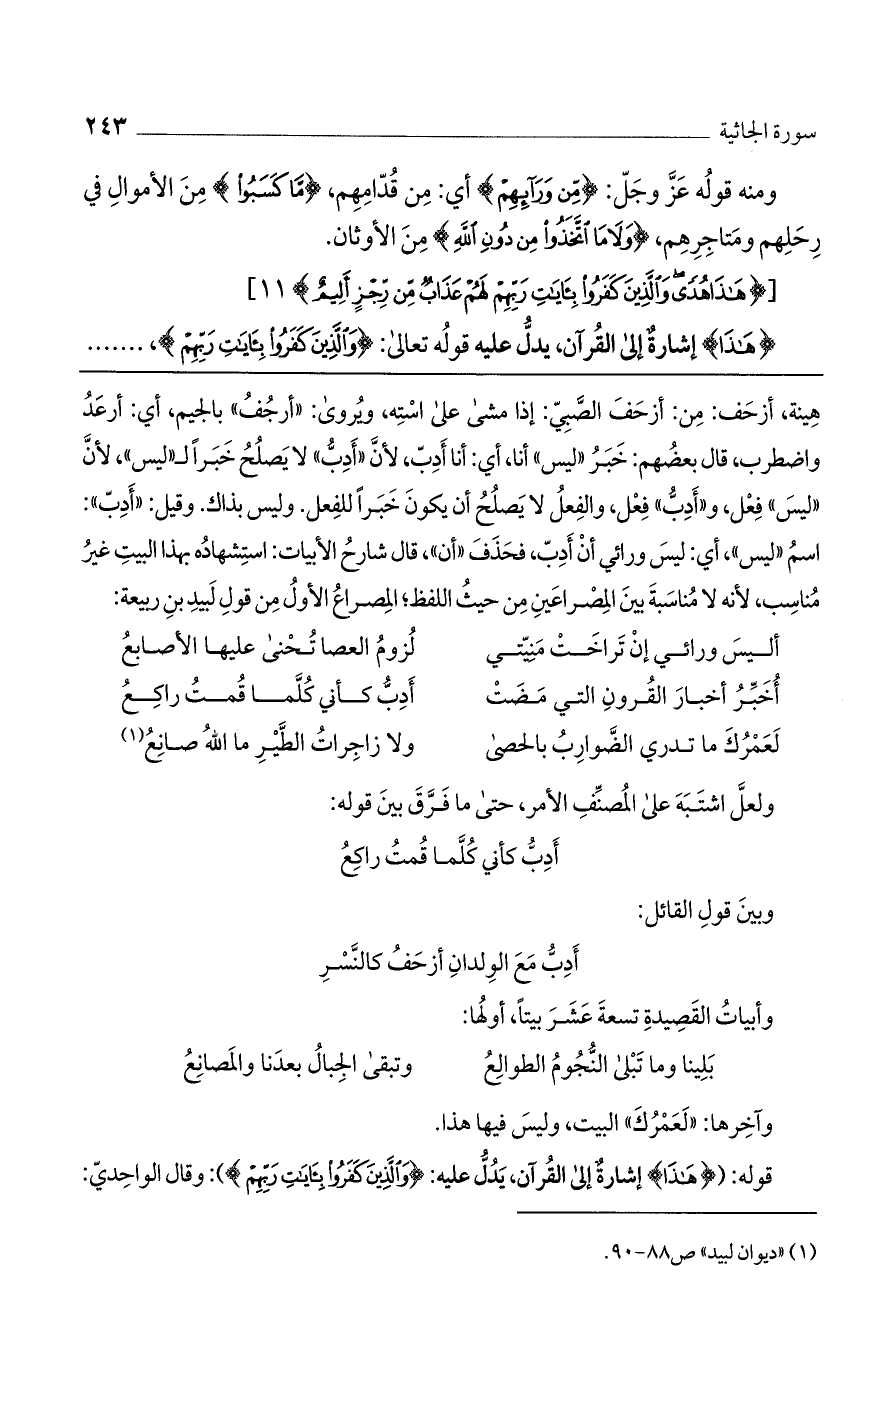 سورة الجاثية ٢٤٣
ومنه قولُه عَزَّ وجَلّ: ﴿مِّن وَرَآئِهِمْ﴾ أي: مِن قُدّامِهِم، ﴿مَّا كَسَبُواْ﴾ مِنَ الأموالِ في
رِحَلِهم ومَتاجِرِهِم، ﴿وَلَا مَا ٱتَّخَذُواْ مِن دُونِ ٱللَّهِ﴾ مِنَ الأوثان.
[﴿هَٰذَا هُدًى وَٱلَّذِينَ كَفَرُواْ بِـَٔايَٰتِ رَبِّهِمْ لَهُمْ عَذَابٌ مِّن رِّجْزٍ أَلِيمٌ﴾ ١١]
﴿هَٰذَا﴾ إشارةٌ إلىٰ القُرآن، يدلُّ عليه قولُه تعالىٰ: ﴿وَٱلَّذِينَ كَفَرُواْ بِـَٔايَٰتِ رَبِّهِمْ﴾، .......
هِينة، أزحَف: مِن: أزحَفَ الصَّبِيّ: إذا مشىٰ علىٰ اسْتِه، ويُروىٰ: «أرجُفُ» بالجيم، أي: أرعَدُ
واضطرب، قال بعضُهم: خَبَرُ «ليس» أنا، أي: أنا أدِبّ، لأنَّ «أَدِبُّ» لا يَصلُحُ خَبَراً لـ«ليس»، لأنَّ
«ليسَ» فِعْل، و«أَدِبُّ» فِعْل، والفِعلُ لا يَصلُحُ أن يكونَ خَبَراً للفِعل. وليس بذاك. وقيل: «أَدِبّ»:
اسمُ «ليس»، أي: ليسَ ورائي أنْ أَدِبّ، فحَذَفَ «أن»، قال شارحُ الأبيات: استِشهادُه بهذا البيتِ غيرُ
مُناسِب، لأنه لا مُناسَبةَ بينَ المِصْراعَينِ مِن حيثُ اللفظ؛ المِصراعُ الأولُ مِن قولِ لَبيدِ بنِ ربيعة:
أليسَ ورائي إنْ تَراخَتْ مَنِيّتي لُزومُ العصا تُحْنىٰ عليها الأصابعُ
أُخَبِّرُ أخبارَ القُرونِ التي مَضَتْ أَدِبُّ كأني كُلَّما قُمتُ راكِعُ
لَعَمْرُكَ ما تدري الضَّوارِبُ بالحصىٰ ولا زاجِراتُ الطَّيْرِ ما اللهُ صانِعُ(١)
ولعلَّ اشتَبَهَ علىٰ المُصنِّفِ الأمر، حتىٰ ما فَرَّقَ بينَ قوله:
أَدِبُّ كأني كُلَّما قُمتُ راكِعُ
وبينَ قولِ القائل:
أَدِبُّ مَعَ الوِلدانِ أزحَفُ كالنَّسْرِ
وأبياتُ القَصِيدةِ تسعةَ عَشَرَ بيتاً، أولُها:
بَلِينا وما تَبْلىٰ النُّجُومُ الطوالِعُ وتبقىٰ الجِبالُ بعدَنا والمَصانِعُ
وآخِرها: «لَعَمْرُكَ» البيت، وليسَ فيها هذا.
قوله: (﴿هَٰذَا﴾ إشارةٌ إلىٰ القُرآن، يَدُلُّ عليه: ﴿وَٱلَّذِينَ كَفَرُواْ بِـَٔايَٰتِ رَبِّهِمْ﴾): وقال الواحِديّ:
(١) «ديوان لبيد» ص٨٨-٩٠.